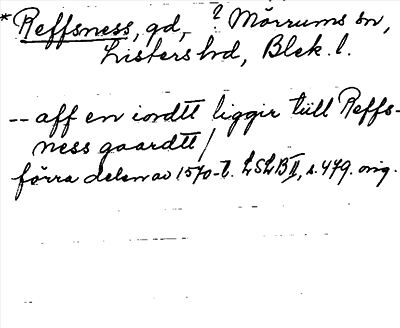 * Reffsness, gd, ? Mörrums sn,
Listers hd, Blek. l.
-- aff en iordtt liggir tiill Reffs-
ness gaardtt /
förra delen av 1570-t. LSLB II, s. 479. orig.